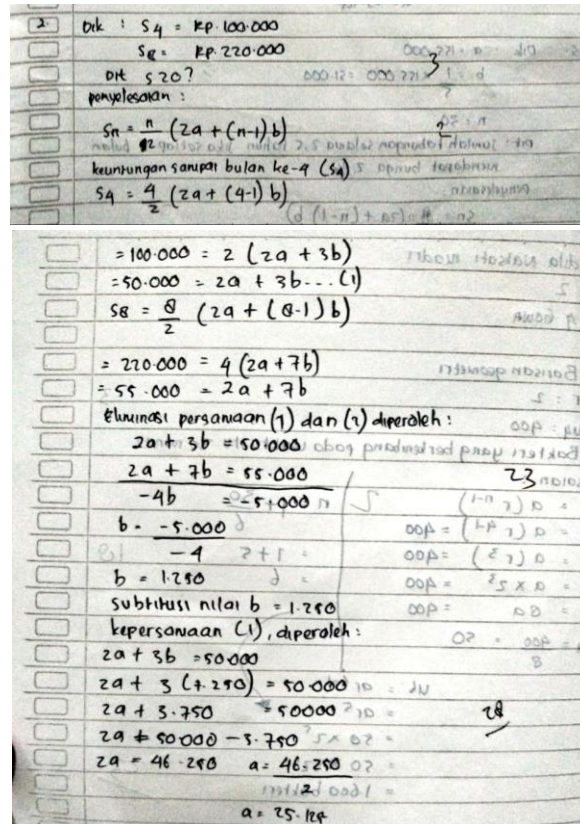 2. Dik : S4 = Rp. 100.000
S8 = Rp. 220.000
Dit S20?
3
penyelesaian :
Sn = n/2 (2a + (n-1) b)
2
keuntungan sampai bulan ke-4 (S4)
S4 = 4/2 (2a + (4-1) b)
= 100.000 = 2 (2a + 3b)
= 50.000 = 2a + 3b... (1)
S8 = 8/2 (2a + (8-1) b)
= 220.000 = 4 (2a + 7b)
= 55.000 = 2a + 7b
Eliminasi persamaan (1) dan (2) diperoleh :
2a + 3b = 50.000
2a + 7b = 55.000
23
-4b = -5.000
b = -5.000 / -4
b = 1.250
Subtitusi nilai b = 1.250
kepersamaan (1), diperoleh :
2a + 3b = 50.000
2a + 3 (1.250) = 50.000
2a + 3.750 = 50000
28
2a = 50.000 - 3.750
2a = 46.250 a = 46.250 / 2
a = 25.125